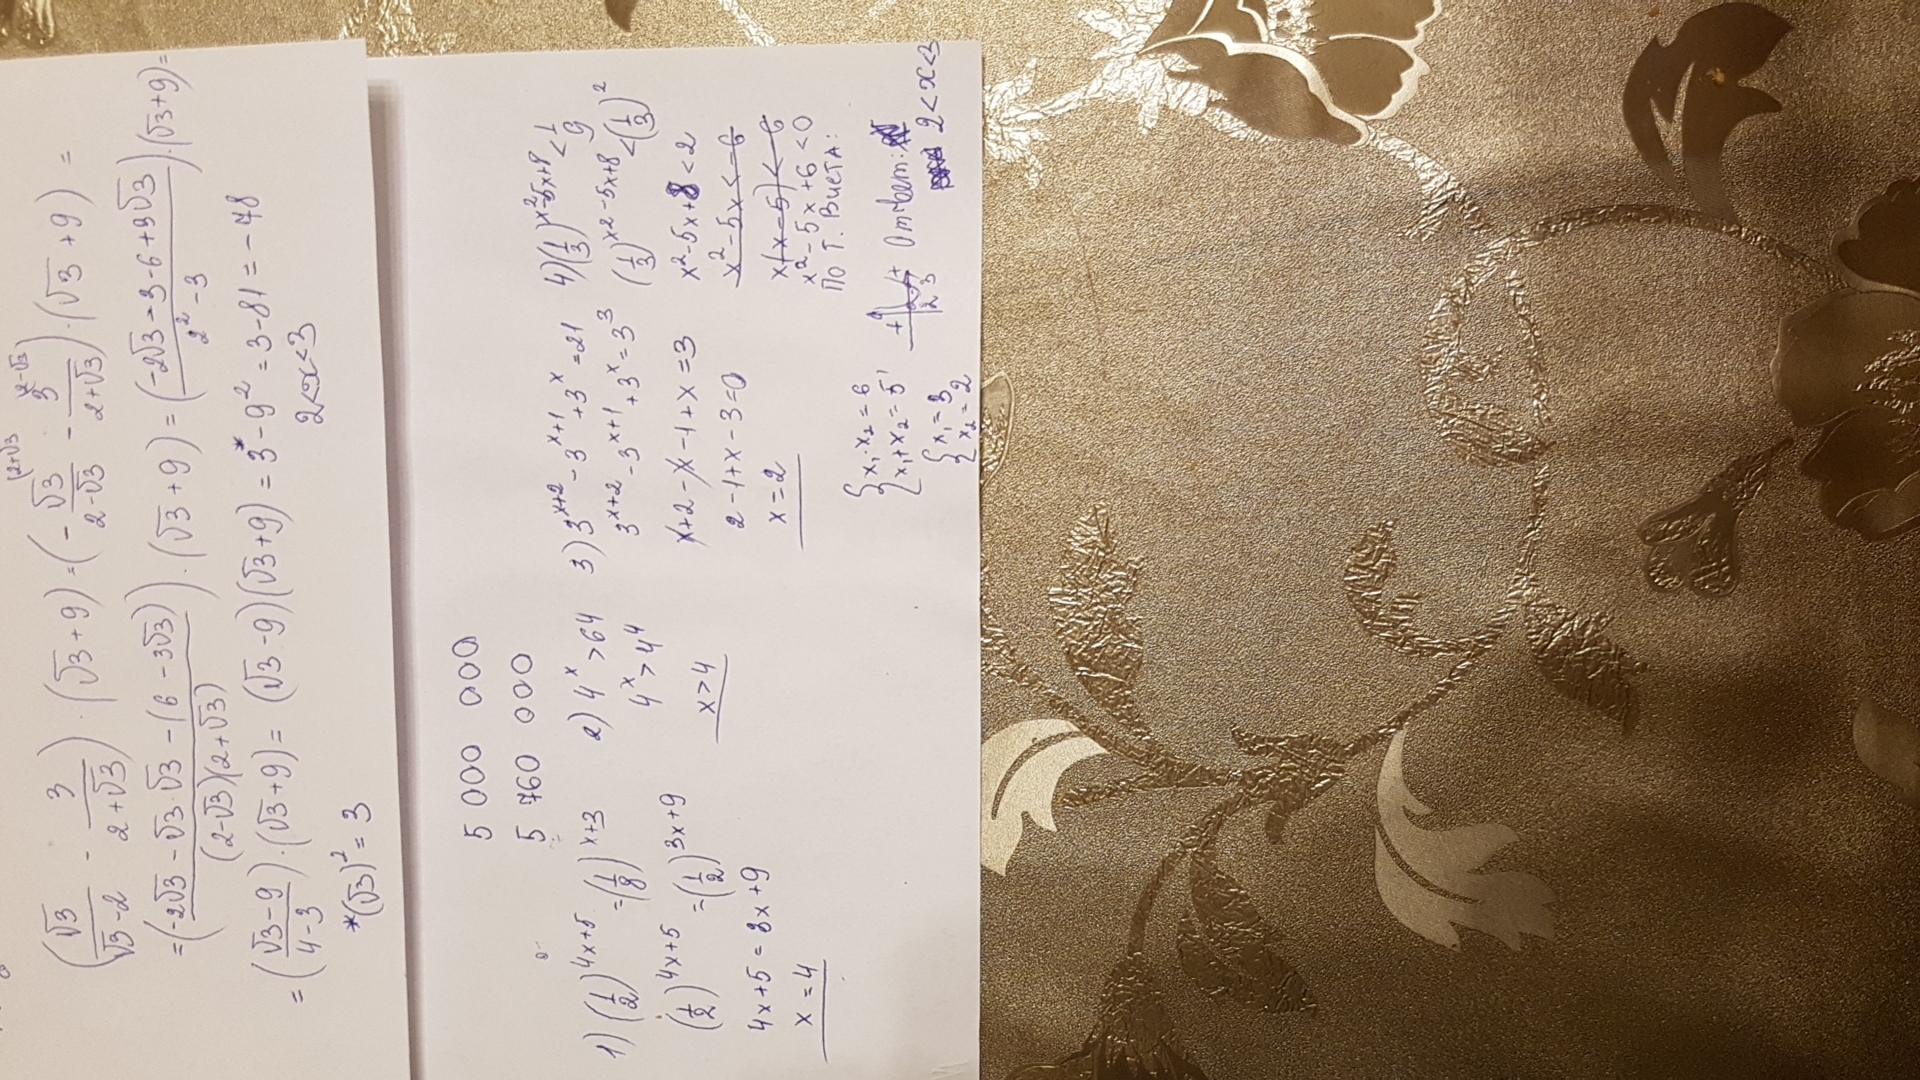 (√3/(√3-2) - 3/(2+√3)) · (√3+9) = (- √3/(2-√3) - 3/(2+√3)) · (√3+9) =
= (-2√3 - √3·√3 - (6-3√3))/((2-√3)(2+√3)) · (√3+9) = (-2√3-3-6+3√3)/(2²-3) · (√3+9) =
= (√3-9)/(4-3) · (√3+9) = (√3-9)(√3+9) = 3* - 9² = 3-81 = -78
*(√3)² = 3
2<x<3
5 000 000
5 760 000
1) (1/2)^(4x+5) = (1/8)^(x+3)
(1/2)^(4x+5) = (1/2)^(3x+9)
4x+5 = 3x+9
x = 4
2) 4^x > 64
4^x > 4^4
x > 4
3) 3^(x+2) - 3^(x+1) + 3^x = 21
3^(x+2) - 3^(x+1) + 3^x = 3^3
x+2-x-1+x = 3
2-1+x-3=0
x = 2
4) (1/3)^(x²-5x+8) < 1/9
(1/3)^(x²-5x+8) < (1/3)^2
x²-5x+8 < 2
x²-5x < -6
x(x-5) < -6
x²-5x+6 < 0
По т. Виета:
{ x₁·x₂ = 6
{ x₁+x₂ = 5
{ x₁ = 3
{ x₂ = 2
+ - +
2 3
Ответ:
2<x<3